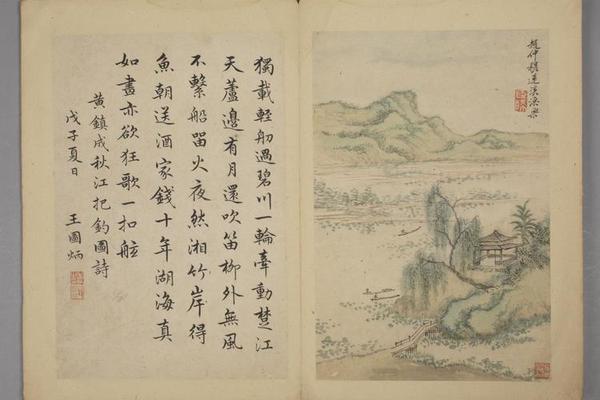 趙仲穆蓮溪漁樂
獨載輕舠過碧川一輪牽動楚江
天蘆邊有月還吹笛柳外無風
不繫船畱火夜然湘竹岸得
魚朝送酒家錢十年湖海真
如畫亦欲狂歌一扣舷
黄鎮成秋江把釣圖詩
戊子夏日 王國炳